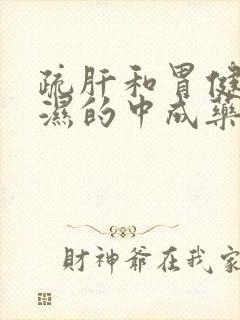 疏肝和胃健
濕的中成藥
財神爺在我家